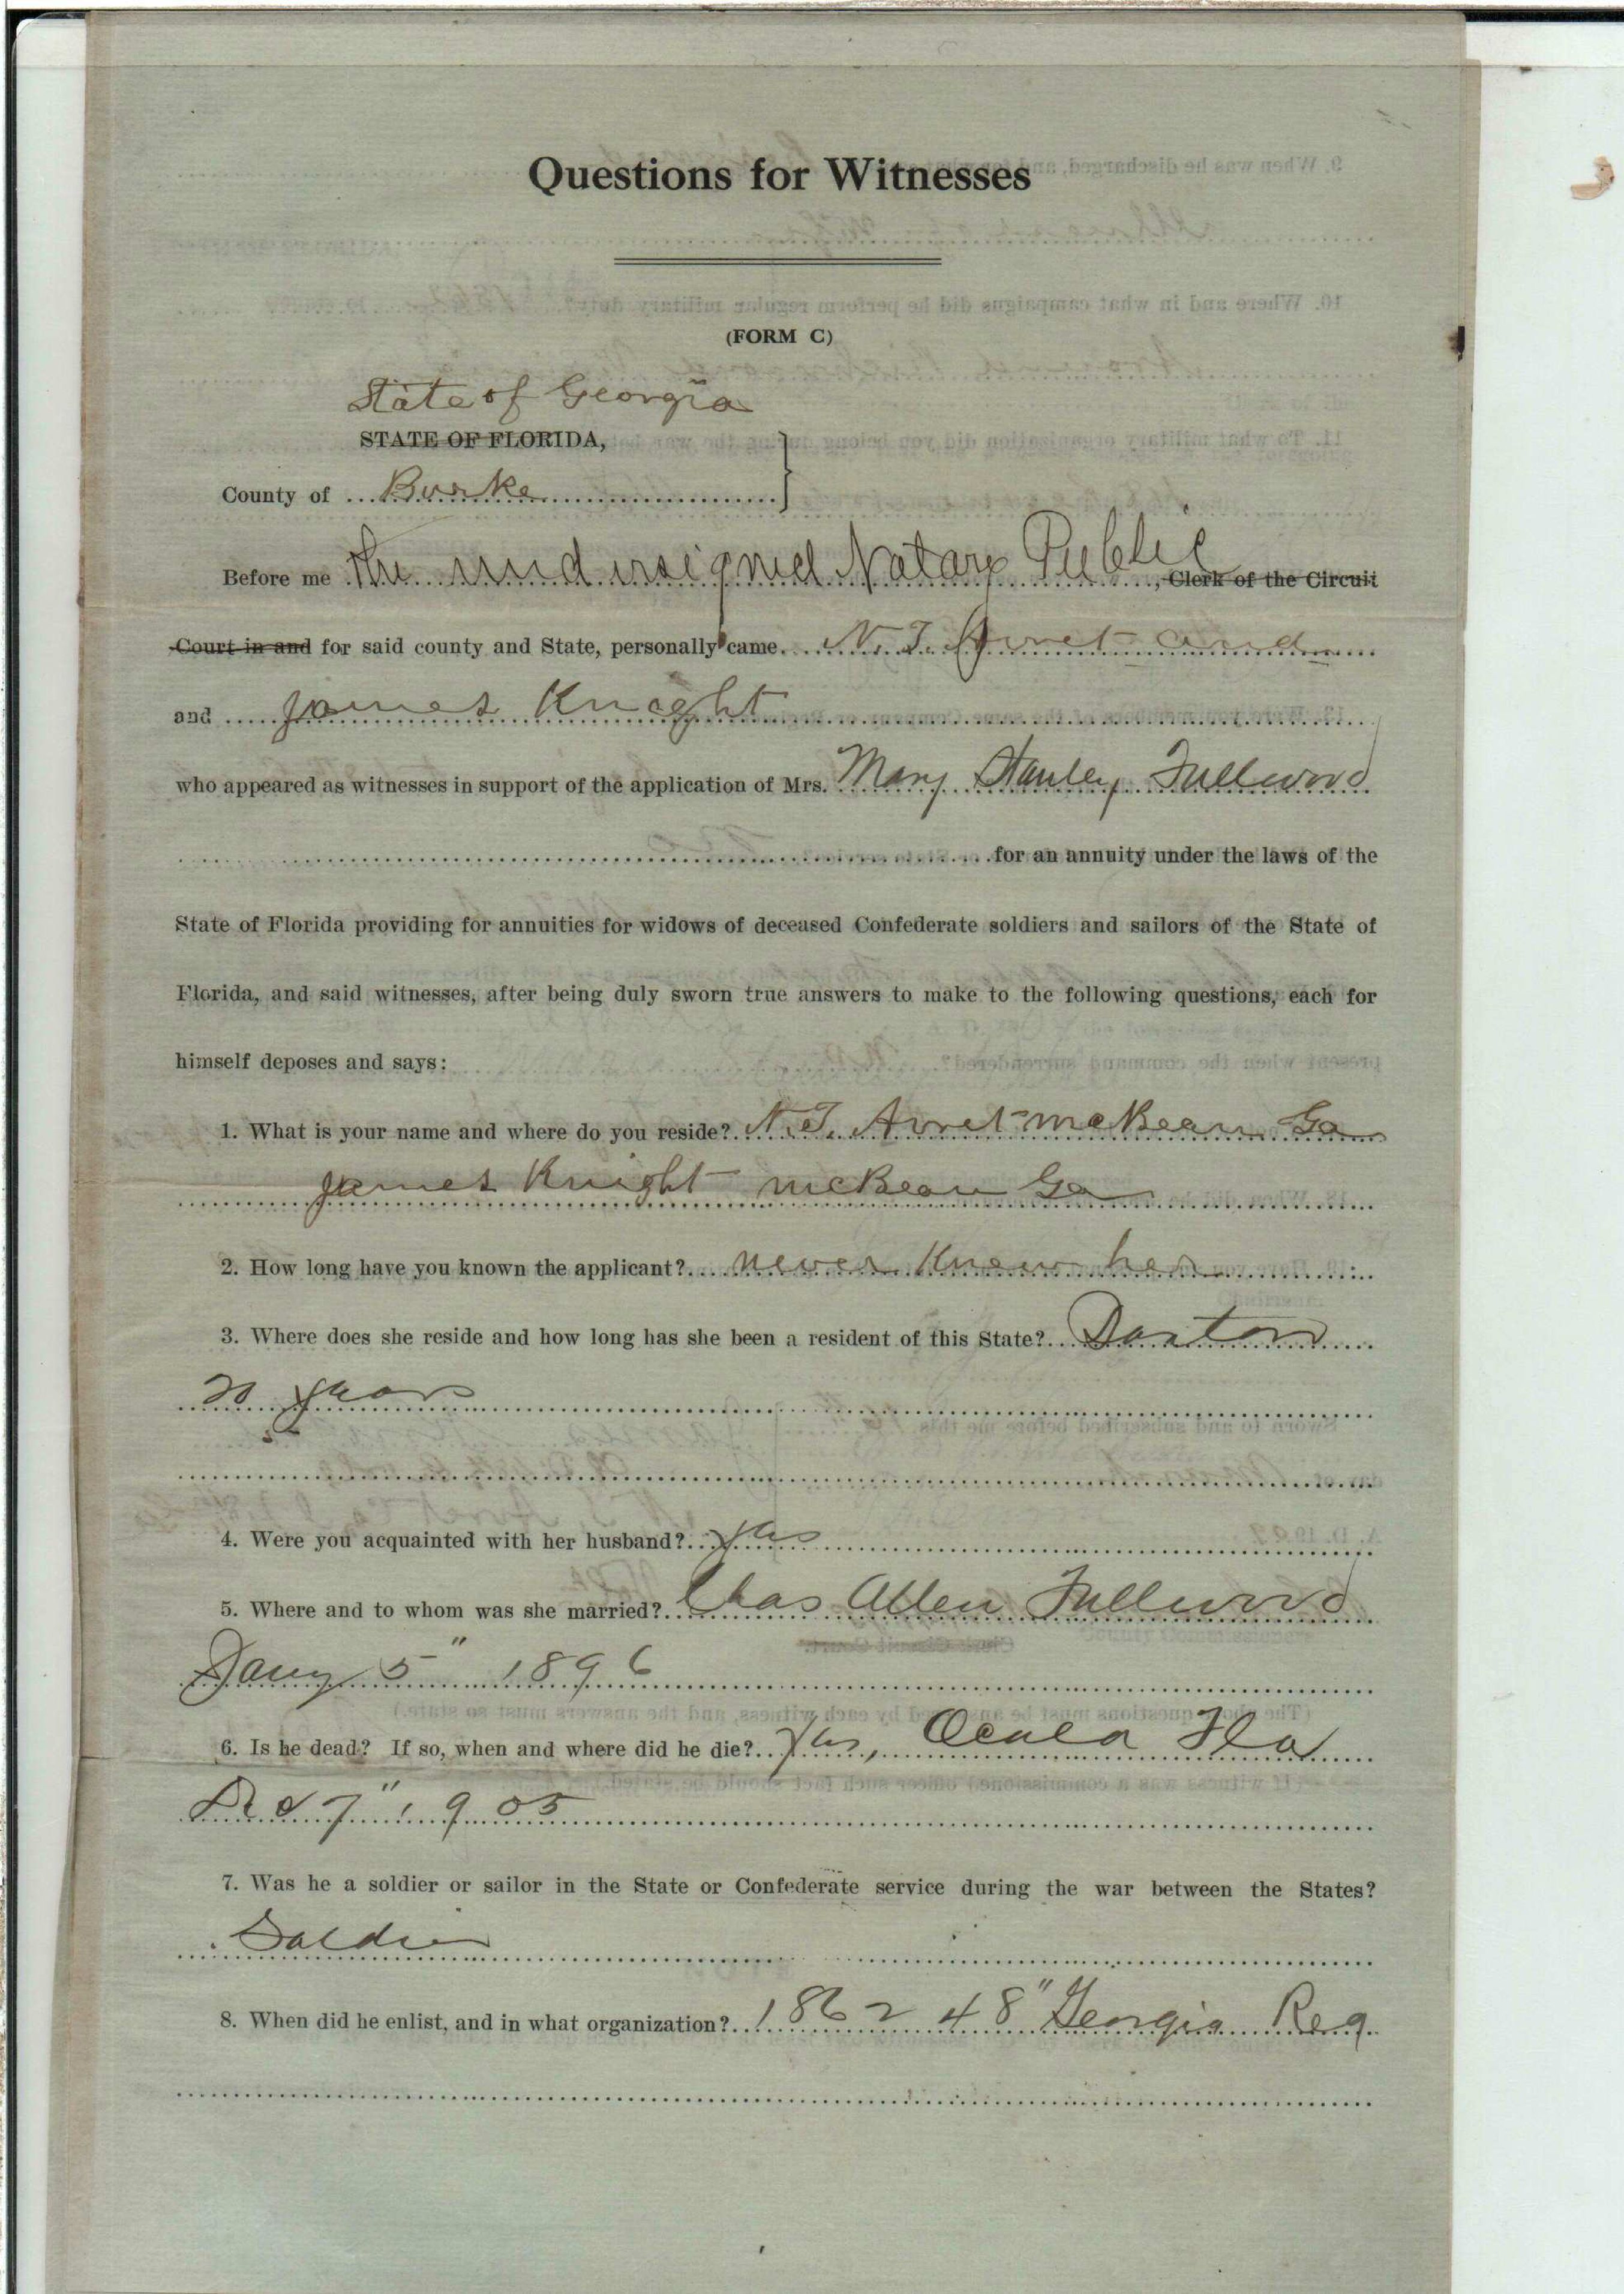 Questions for Witnesses
(FORM C)
State of Georgia
STATE OF FLORIDA,
County of Burke
Before me the undersigned Notary Public, Clerk of the Circuit
Court in and for said county and State, personally came N. T. Avret and
and James Knight
who appeared as witnesses in support of the application of Mrs. Mary Stanley Fullwood
for an annuity under the laws of the
State of Florida providing for annuities for widows of deceased Confederate soldiers and sailors of the State of
Florida, and said witnesses, after being duly sworn true answers to make to the following questions, each for
himself deposes and says:
1. What is your name and where do you reside? N. T. Avret McBean Ga
James Knight McBean Ga
2. How long have you known the applicant? never knew her
3. Where does she reside and how long has she been a resident of this State?
20 years
4. Were you acquainted with her husband? yes
5. Where and to whom was she married? Chas Allen Fullwood
Jany 5" 1896
6. Is he dead? If so, when and where did he die? Yes, Ocala Fla
7" 1905
7. Was he a soldier or sailor in the State or Confederate service during the war between the States?
Soldier
8. When did he enlist, and in what organization? 1862 48" Georgia Reg